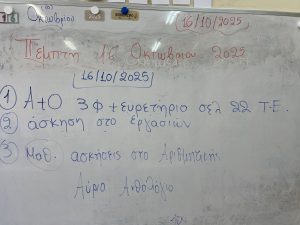 Οκτωβρίου 16/10/2025
Πέμπτη 16 Οκτωβρίου 2025
(16/10/2025)
1 Α+Ο 3Φ + ευρετήριο σελ 22 Τ.Ε.
2 άσκηση στο εργασιών
3 Μαθ. ασκήσεις στο Αριθμητικής
Αύριο Ανθολόγιο